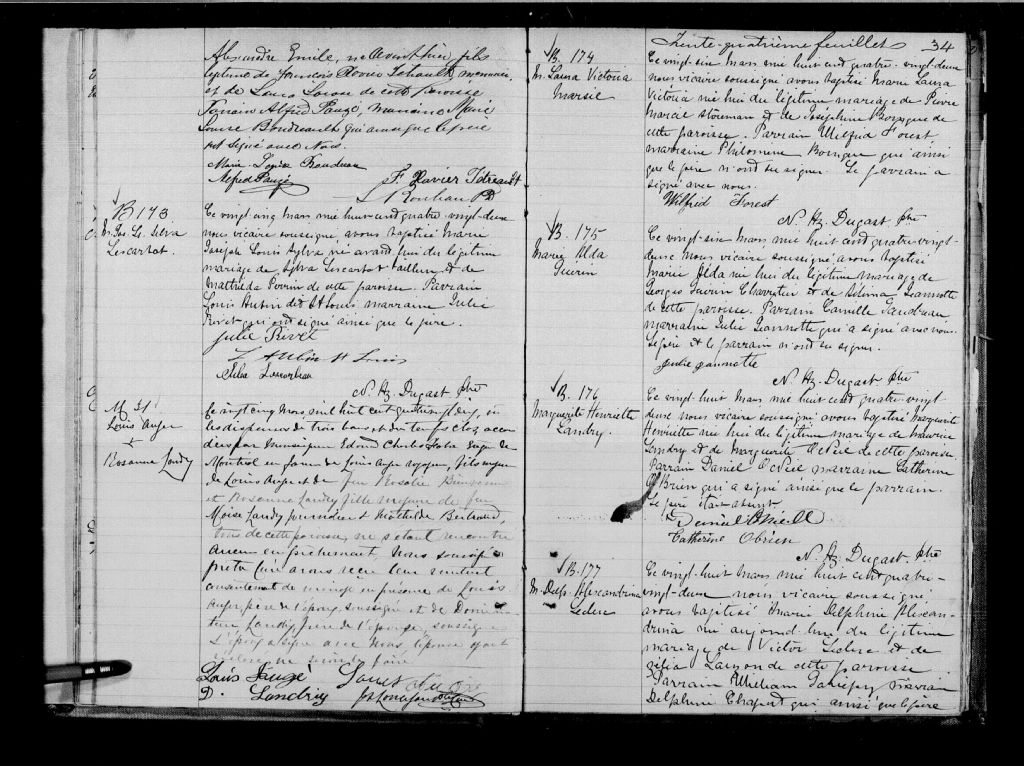 Alexandre Emile, né avant hier, fils
légitime de François Xavier Tétrault, menuisier,
et de Laura Lavoie de cette paroisse
Parrain Alfred Paugé, marraine Marie
Louise Boudreault qui ainsi que le père
ont signé avec Nous.
Marie Louise Boudreau
Alfred Paugé
F. Xavier Tétreault
B 173
M. Jos. Ls. Silva
Lescarbot.
Ce vingt cinq mars mil huit cent quatre-vingt-deux
nous vicaire soussigné avons baptisé Marie
Joseph Louis Sylva né avant hier du légitime
mariage de Sylva Lescarbot tailleur et de
Mathilda Perrin de cette paroisse. Parrain
Louis Aubin dit St Louis marraine Julie
Rivet qui ont signé ainsi que le père.
Julie Rivet
L. Aubin St Louis
Silva Lescarbeau
N. Hz. Dugast ptre
M 31
Louis Auger
+
Rosanna Landry
Ce vingt cinq mars, mil huit cent quatre vingt deux, vu
les dispenses de trois bans et du temps clos accor
dées par Monseigneur Edouard Charles Fabre Evêque de
Montréal en faveur de Louis Auger voyageur, fils majeur
de Louis Auger et de feu Rosalie Bienvenue
et Rosanna Landry fille mineure de feu
Moïse Landry menuisier et Mathilde Bertrand,
tous de cette paroisse, ne s'étant rencontré
aucun empêchement Nous soussigné
prêtre curé avons reçu leur mutuel
consentement de mariage en présence de Louis
Auger, père de l'époux, soussigné et de
Landry, frère de l'épouse, soussigné
L'époux a signé avec Nous, l'épouse ayant
déclaré ne savoir le faire
Louis Augé
D. Landry
Trente-quatrième feuillet 34
B. 174
M. Laura Victoria
Marsil
Ce vingt-six mars mil huit cent quatre-vingt-deux
nous vicaire soussigné avons baptisé Marie Laura
Victoria née hier du légitime mariage de Pierre
Marcil et de Joséphine Bourgogne de
cette paroisse. Parrain Wilfrid Forest
marraine Philomène qui ainsi
que le père n'ont su signer. Le parrain a
signé avec nous.
Wilfrid Forest
N. Hz. Dugast ptre
B. 175
Marie Alda
Guérin
Ce vingt-six mars mil huit cent quatre-vingt-
deux nous vicaire soussigné avons baptisé
Marie Alda née hier du légitime mariage de
Georges Guérin Charretier et de Délima Jeannotte
de cette paroisse. Parrain Camille Gaudreau
marraine Julie Jeannotte qui a signé avec nous.
Le père et le parrain n'ont su signer.
Julie Jannotte
N. Hz. Dugast ptre
B. 176
Marguerite Henriette
Landry.
Ce vingt-huit mars mil huit cent quatre-vingt-
deux nous vicaire soussigné avons baptisé Marguerite
Henriette née hier du légitime mariage de Maurice
Landry et de Marguerite O'Neil de cette paroisse.
Parrain Daniel O'Neil marraine Catherine
O'Brien qui a signé ainsi que le parrain.
Le père était absent.
Daniel O'Neill
Catherine Obrien
N. Hz. Dugast ptre
B. 177
M. Delph. Alexandrina
Leduc
Ce vingt-huit mars mil huit cent quatre-
vingt-deux nous vicaire soussigné
avons baptisé Marie Delphine Alexan-
drina née aujourd'hui du légitime
mariage de Victor Leduc et de
Zéphia Lamonde de cette paroisse
Parrain William
Delphine Chaput qui ainsi que le père